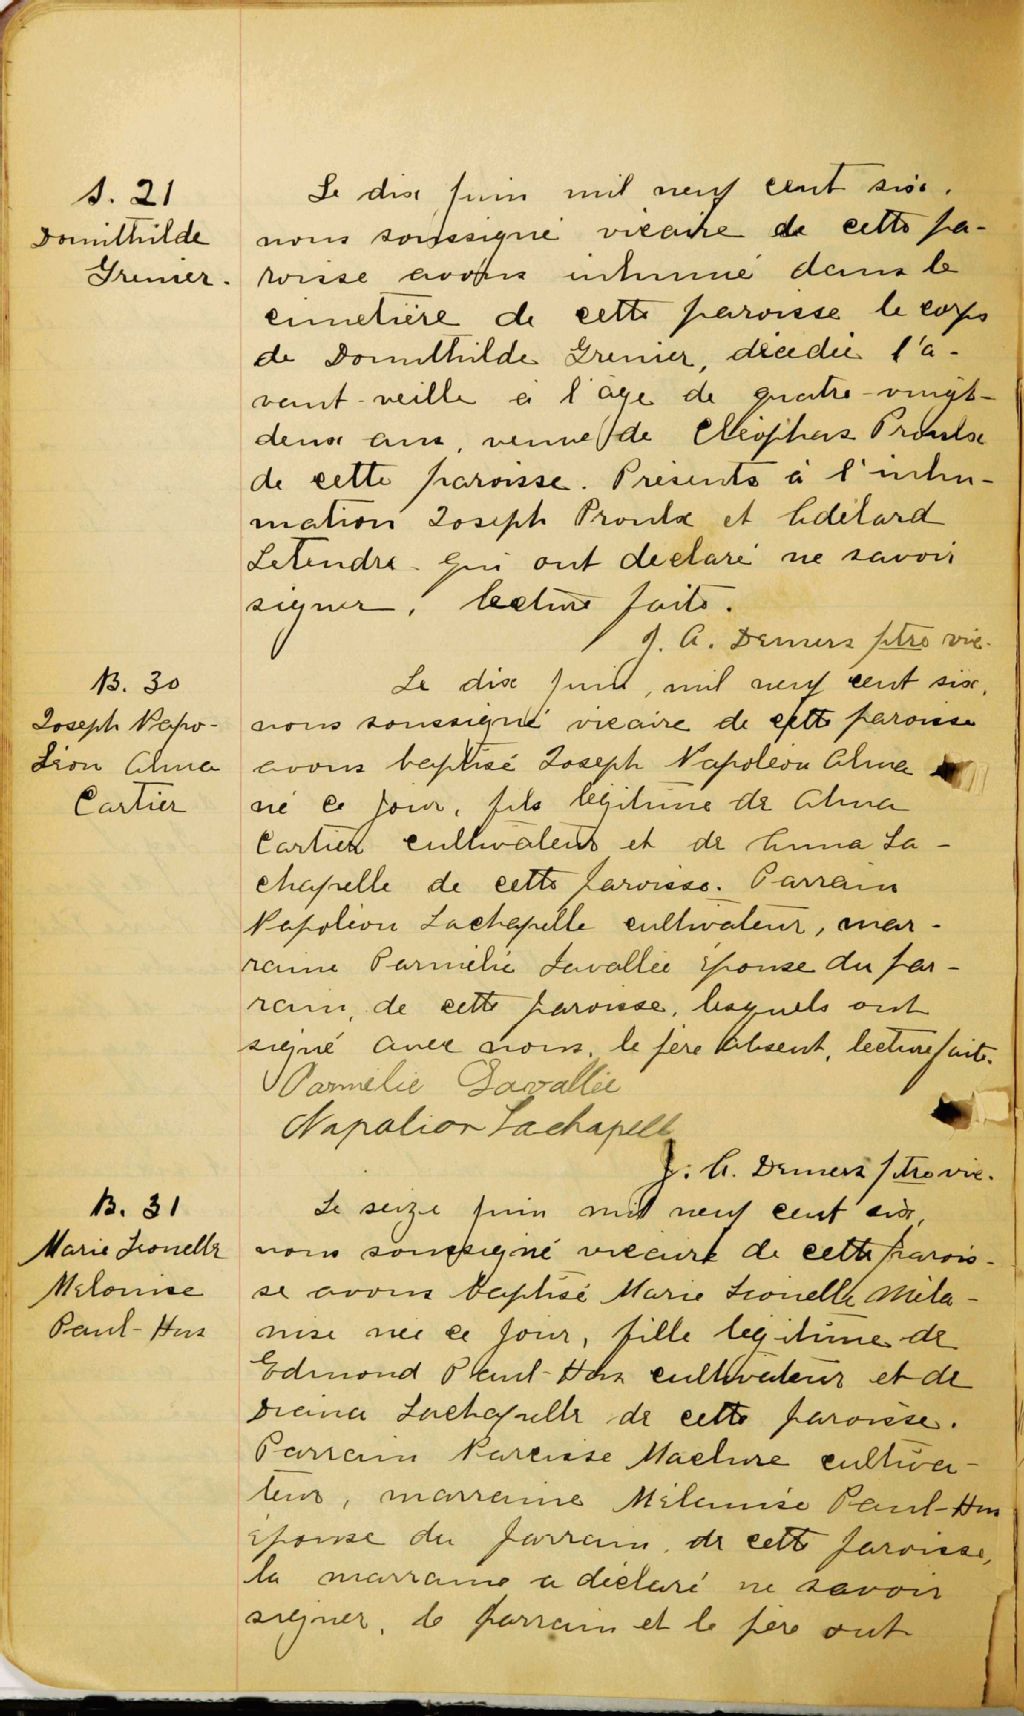 S. 21
Domithilde
Grenier.
Le dix juin mil neuf cent six,
nous soussigné vicaire de cette pa-
roisse avons inhumé dans le
cimetière de cette paroisse le corps
de Domithilde Grenier, décédée l'a-
vant-veille à l'âge de quatre-vingt-
deux ans, veuve de Cléophas Proulx
de cette paroisse. Présents à l'inhu-
mation Joseph Proulx et Adélard
Letendre qui ont déclaré ne savoir
signer, lecture faite.
J. A. Demers ptre vic.
B. 30
Joseph Napo-
léon Alma
Cartier
Le dix juin, mil neuf cent six,
nous soussigné vicaire de cette paroisse
avons baptisé Joseph Napoléon Alma
né ce jour, fils légitime de Alma
Cartier cultivateur et de Anna La-
chapelle de cette paroisse. Parrain
Napoléon Lachapelle cultivateur, mar-
raine Parmélie Lavallée épouse du par-
rain, de cette paroisse, lesquels ont
signé avec nous, le père absent, lecture faite.
Parmélie Lavallée
Napolion Lachapell
J. A. Demers ptre vic.
B. 31
Marie Lionelle
Mélanise
Paul-Hus
Le seize juin mil neuf cent six,
nous soussigné vicaire de cette parois-
se avons baptisé Marie Lionelle Méla-
nise née ce jour, fille légitime de
Edmond Paul-Hus cultivateur et de
Diana Lachapelle de cette paroisse.
Parrain Narcisse Maclure cultiva-
teur, marraine Mélanise Paul-Hus
épouse du parrain, de cette paroisse,
la marraine a déclaré ne savoir
signer, le parrain et le père ont